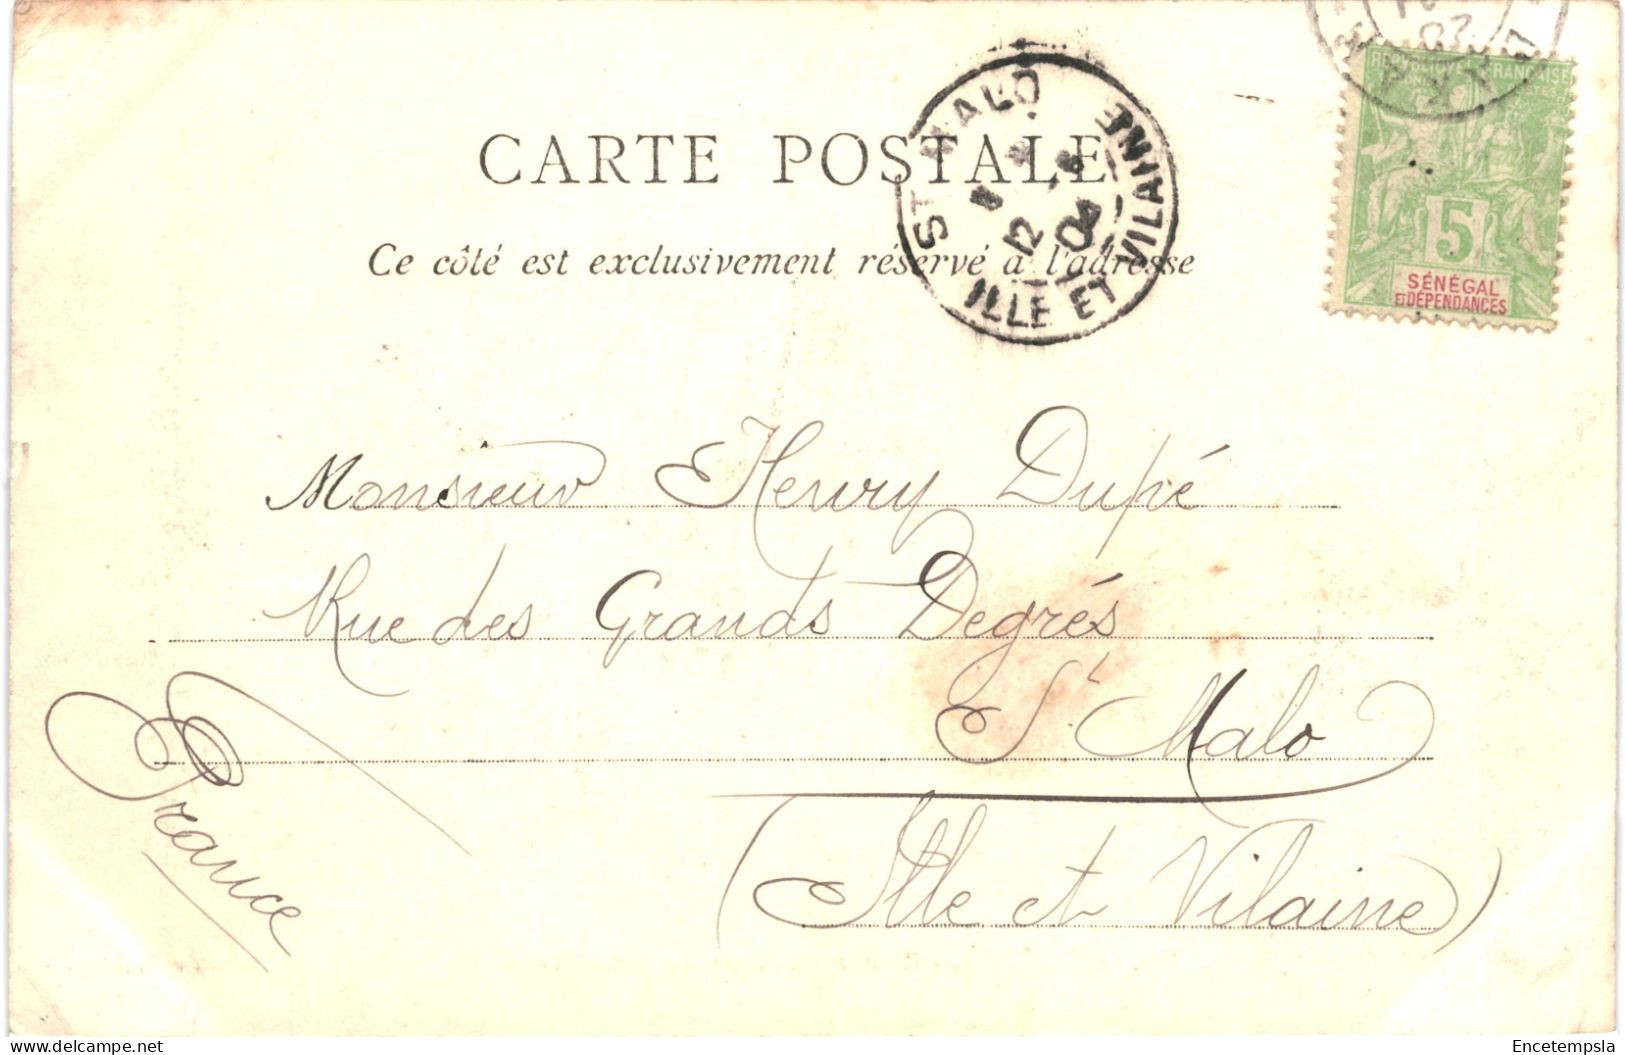 CARTE POSTALE
Ce côté est exclusivement réservé à l'adresse
ST MALO
12
04
ILLE ET VILAINE
RÉPUBLIQUE FRANÇAISE
5
SÉNÉGAL
ET DÉPENDANCES
Monsieur Henry Dupé
Rue des Grands Degrés
St Malo
(Ille et Vilaine)
France
www.delcampe.net
Encetempsla